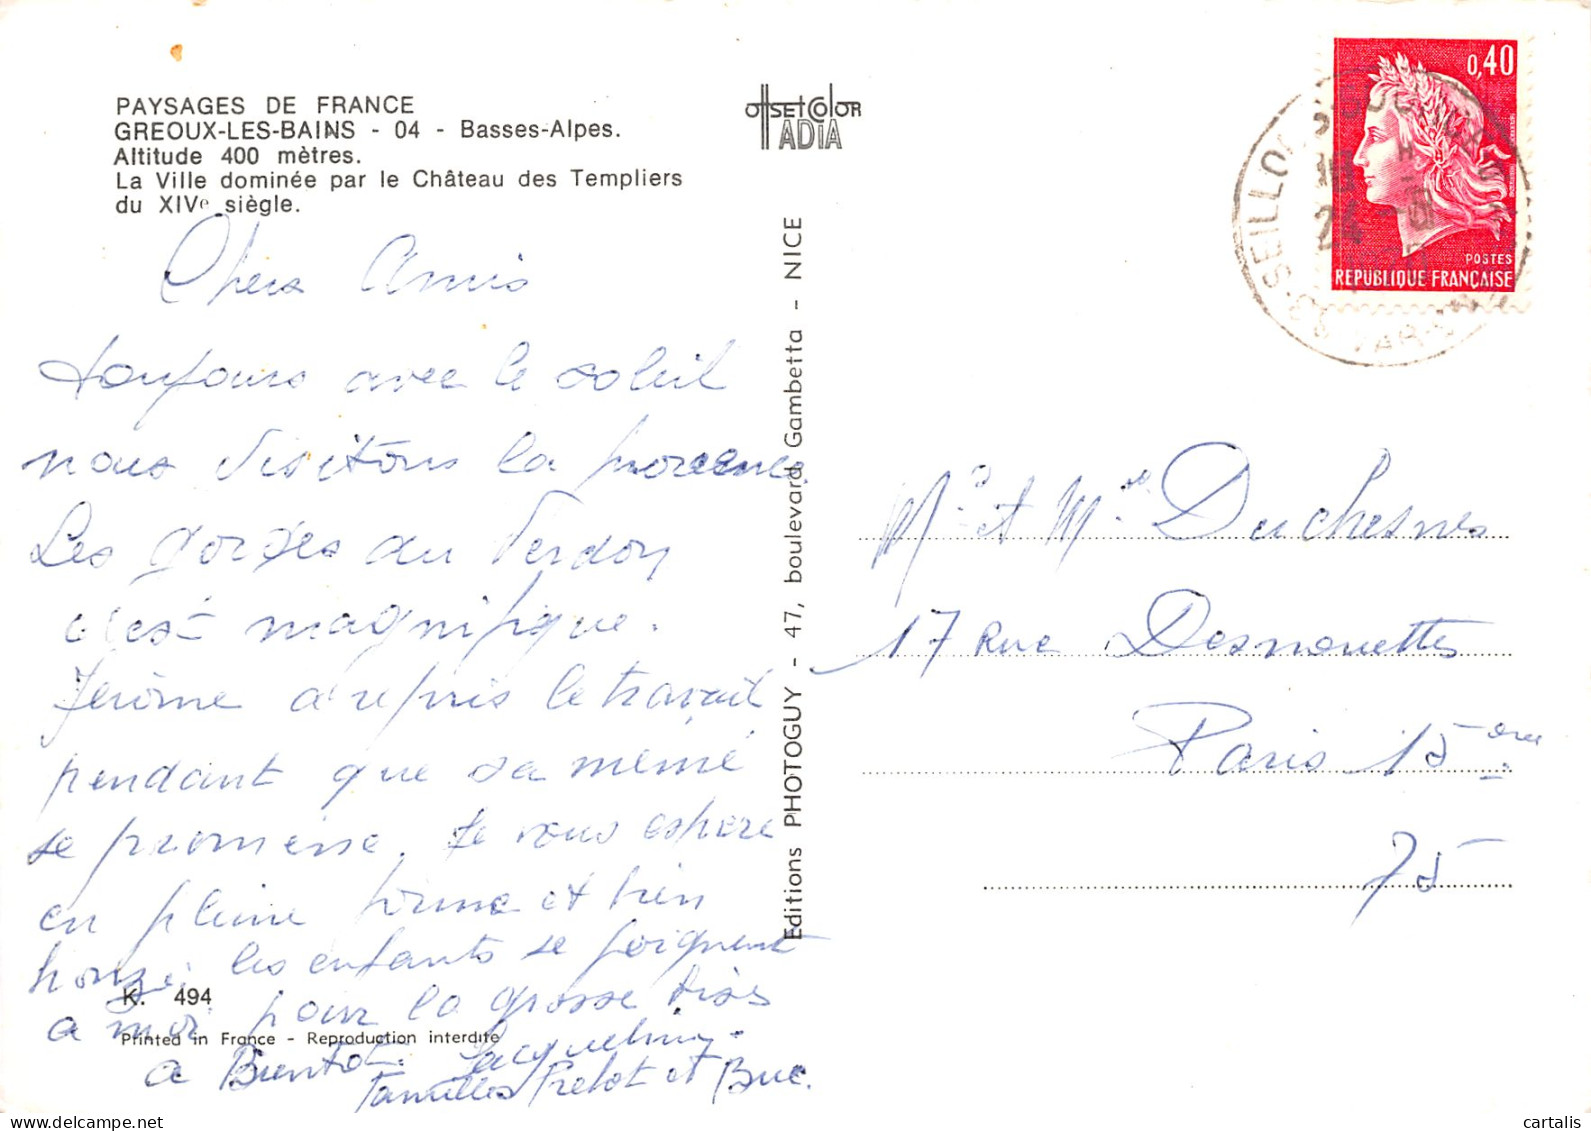 PAYSAGES DE FRANCE
GREOUX-LES-BAINS - 04 - Basses-Alpes.
Altitude 400 mètres.
La Ville dominée par le Château des Templiers
du XIVe siègle.
Chers Amis
toujours avec le soleil
nous visitons la provence
Les gorges du Verdon
c'est magnifique.
Jérôme a repris le travail
pendant que sa mémé
se promène. Je vous espère
en pleine forme et bien
bronzé, les enfants se joignent
a moi pour la grosse bises
a Bientot. Jacqueline
Familles Prelot et Buc.
K. 494
Printed in France - Reproduction interdite
OffSEtColOR
ADIA
Editions PHOTOGUY - 47, boulevard Gambetta - NICE
0,40
POSTES
REPUBLIQUE FRANÇAISE
SEILLONS
24
83 VAR
Mr et Mme Duchesnes
17 Rue Desnouettes
Paris 15ème
75
cartalis
www.delcampe.net